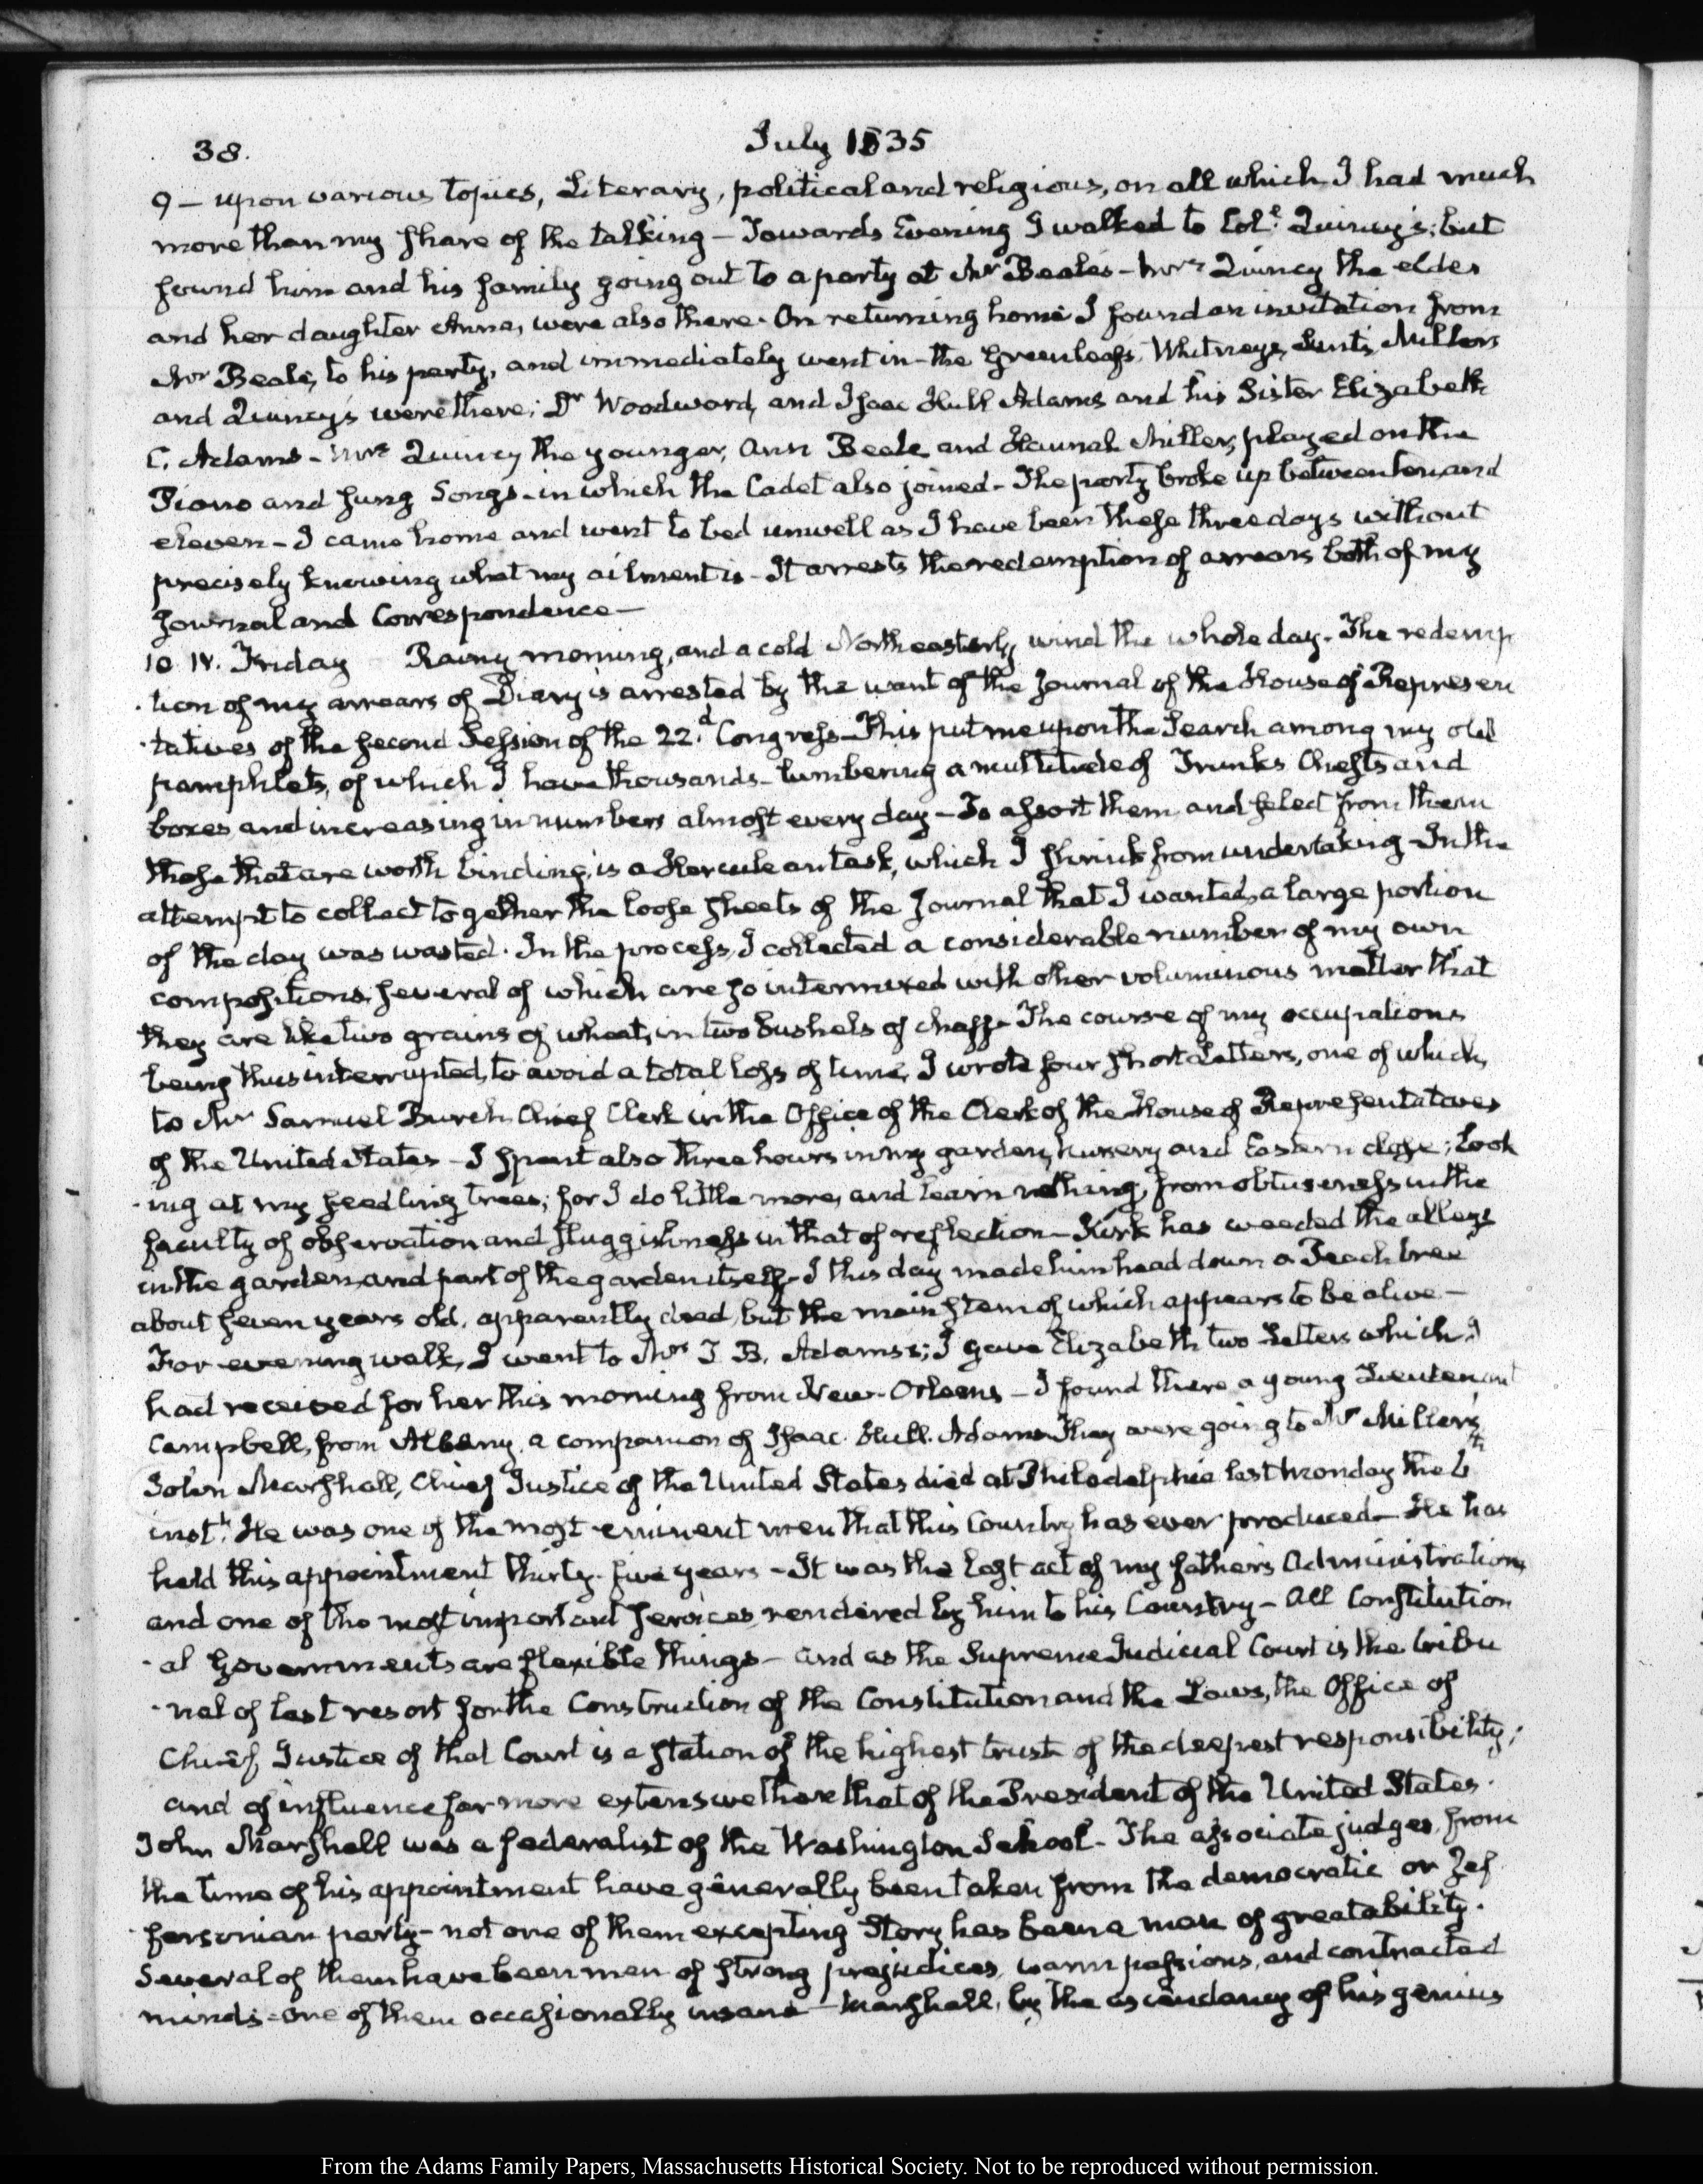 38.
July 1835
9 — upon various topics, Literary, political and religious, on all which I had much
more than my share of the talking — Towards Evening I walked to Col.l Quincy's; but
found him and his family going out to a party at Mr Beale's — Mrs Quincy the elder
and her daughter Anna, were also there. On returning home I found an invitation from
Mr Beale, to his party, and immediately went in — the Greenleafs, Whitneys, Lunts, Millers
and Quincy's were there; Dr Woodward, and Isaac Hull Adams and his Sister Elizabeth
C. Adams — Mrs Quincy the younger, Ann Beale and Hannah Miller, played on the
Piano and sung Songs — in which the Cadet also joined — The party broke up between ten and
eleven — I came home and went to bed unwell as I have been these three days without
precisely knowing what my ailment is — It arrests the redemption of arrears both of my
Journal and Correspondence —
10 IV. Friday Rainy morning, and a cold Northeasterly wind the whole day. The redemp
tion of my arrears of Diary is arrested by the want of the Journal of the House of Represen
tatives of the second Session of the 22.d Congress — This put me upon the Search among my old
pamphlets, of which I have thousands — lumbering a multitude of Trunks Chests and
boxes and increasing in numbers almost every day — To assort them and select from them
those that are worth binding, is a Herculean task, which I shrink from undertaking — In the
attempt to collect together the loose sheets of the Journal that I wanted, a large portion
of the day was wasted. In the process, I collected a considerable number of my own
compositions, several of which are so intermixed with other voluminous matter that
they are like two grains of wheat, in two bushels of chaff — The course of my occupations
being thus interrupted, to avoid a total loss of time, I wrote four short Letters, one of which,
to Mr Samuel Burch Chief Clerk in the Office of the Clerk of the House of Representatives
of the United States — I spent also three hours in my garden, nursery and Eastern close; look
ing at my seedling trees; for I do little more, and learn nothing, from obtuseness in the
faculty of observation and sluggishness in that of reflection — Kirk has weeded the alleys
in the garden, and part of the garden itself — I this day made him head down a Peach tree
about seven years old, apparently dead, but the main stem of which appears to be alive —
For evening walk, I went to Mrs T. B. Adams's; I gave Elizabeth two Letters which I
had received for her this morning from New-Orleans — I found there a young Lieutenant
Campbell, from Albany, a companion of Isaac Hull Adams — They were going to Mr Miller's
John Marshall, Chief Justice of the United States died at Philadelphia last Monday the 6th
inst.t He was one of the most eminent men that this Country has ever produced — He has
held this appointment thirty-five years — It was the last act of my father's Administration,
and one of the most important services rendered by him to his Country — All Constitution
al Governments are flexible things — and as the Supreme Judicial Court is the tribu
nal of last resort for the Construction of the Constitution and the Laws, the Office of
Chief Justice of that Court is a station of the highest trust of the deepest responsibility,
and of influence far more extensive than that of the President of the United States.
John Marshall was a federalist of the Washington School — The associate judges, from
the time of his appointment have generally been taken from the democratic or Jef
fersonian party — not one of them excepting Story, has been a man of great ability.
Several of them have been men of strong prejudices, warm passions, and contracted
minds — one of them occasionally insane — Marshall, by the ascendancy of his genius
From the Adams Family Papers, Massachusetts Historical Society. Not to be reproduced without permission.